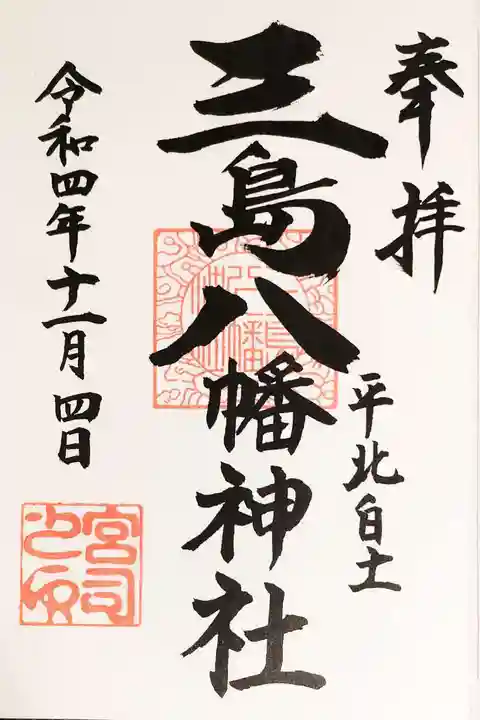 奉拝
平北白土
三島八幡神社
令和四年十一月四日
宮司之印